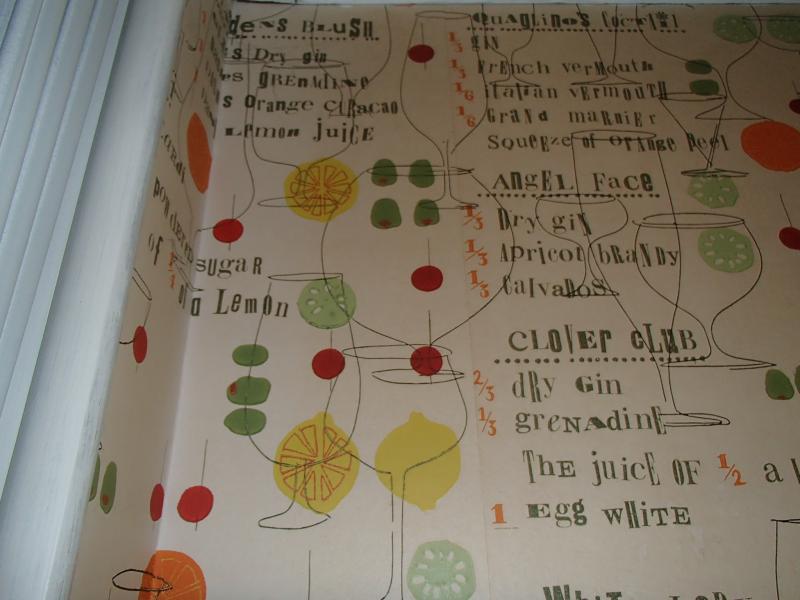 den's Blush
s Dry gin
rs grenadine
s Orange curacao
Lemon juice
powdered sugar
of 1/4 of a Lemon
Quaglino's Coctail
1/3 gin
1/3 French vermouth
1/6 italian vermouth
1/6 Grand marnier
Squeeze of orange peel
Angel Face
1/3 Dry gin
1/3 Apricot brandy
1/3 Calvados
Clover Club
2/3 dry Gin
1/3 grenadine
The juice of 1/2 a l
1 Egg white